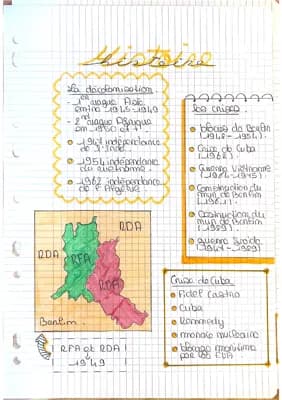 Histoire
La décolonisation
- 1ère vague Asie
entre 1945-1949
- 2nd vague Afrique
en 1950 et +.
1947 indépendance
de l'Inde.
1954 indépendance
du Vietname
1962 indépendance
de l'Algérie
Les crises
blocus de Berlin
(1948-1954).
Crise de Cuba
(1962).
Guerre Vietname
Construction du
mur de Berlin
(1961).
Destruction du
mur de Berlin
(1989).
guerre froide
(1947-1989)
RDA
RDA
RDA
RFA
RDA
Berlin.
RFA et RDA
↓
1949
Crise de Cuba
Fidel Castro
Cuba
Kennedy
menace nucléaire
blocus maritime
par les EUA